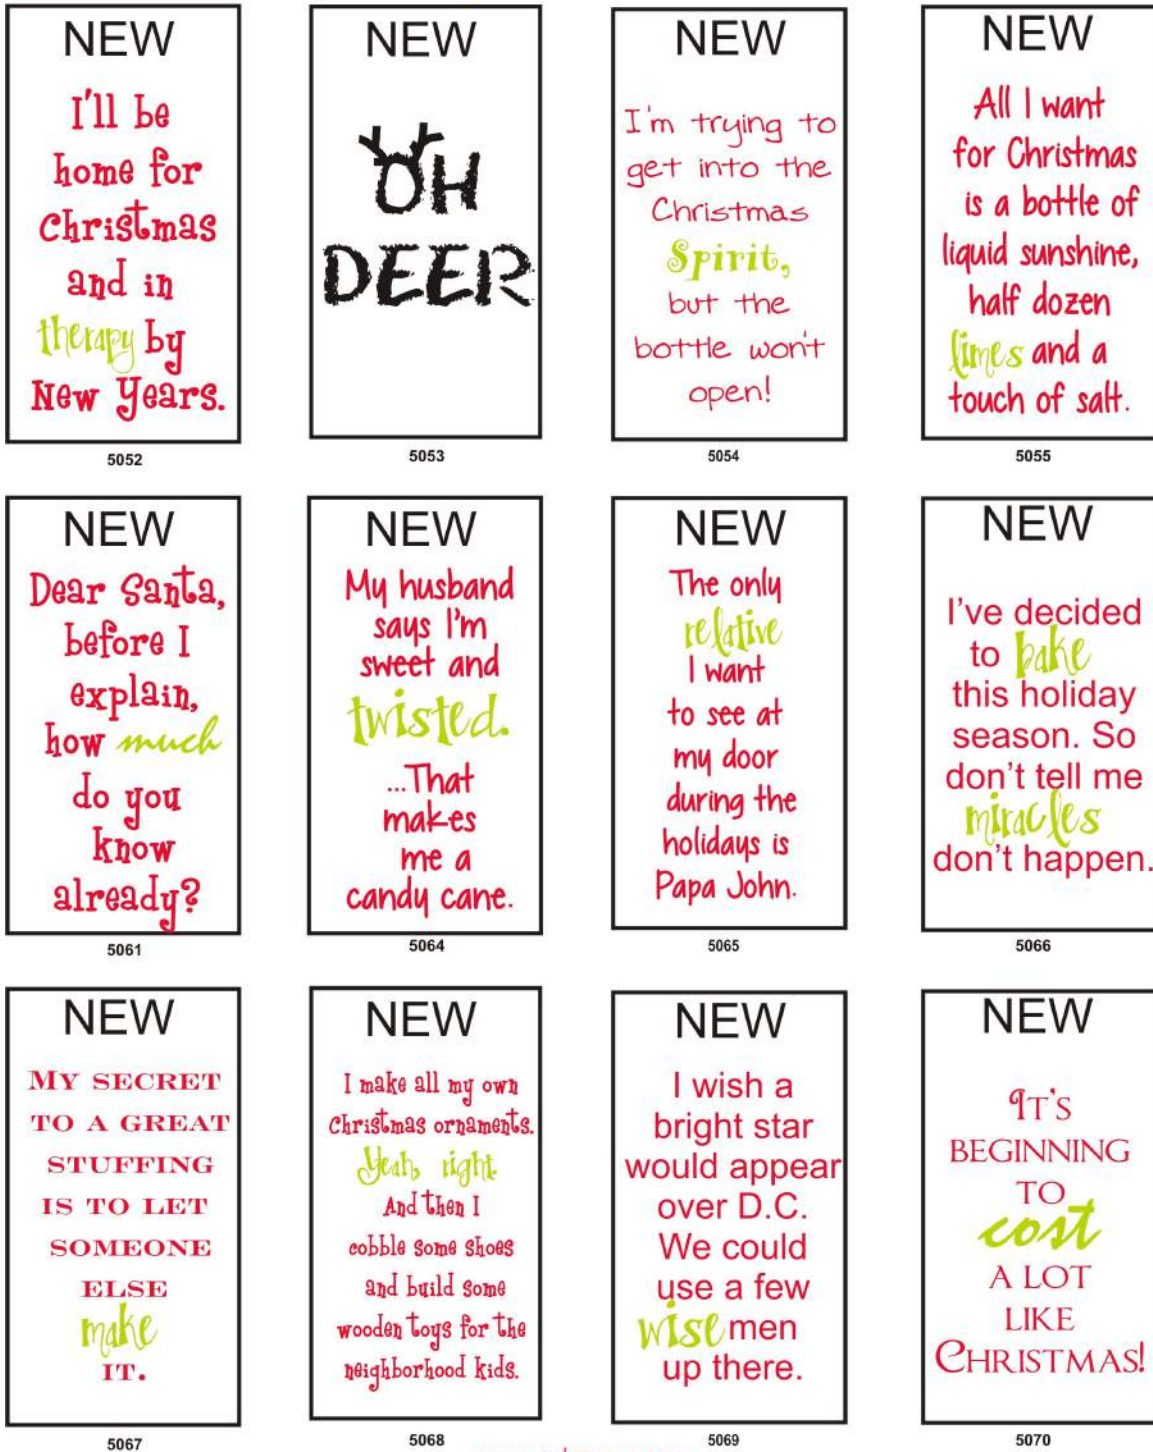 NEW
I'll be
home for
Christmas
and in
therapy by
New Years.
5052
NEW
OH
DEER
5053
NEW
I'm trying to
get into the
Christmas
Spirit,
but the
bottle won't
open!
5054
NEW
All I want
for Christmas
is a bottle of
liquid sunshine,
half dozen
limes and a
touch of salt.
5055
NEW
Dear Santa,
before I
explain,
how much
do you
know
already?
5061
NEW
My husband
says I'm
sweet and
twisted.
...That
makes
me a
candy cane.
5064
NEW
The only
relative
I want
to see at
my door
during the
holidays is
Papa John.
5065
NEW
I've decided
to bake
this holiday
season. So
don't tell me
miracles
don't happen.
5066
NEW
MY SECRET
TO A GREAT
STUFFING
IS TO LET
SOMEONE
ELSE
make
IT.
5067
NEW
I make all my own
Christmas ornaments.
Yeah, right.
And then I
cobble some shoes
and build some
wooden toys for the
neighborhood kids.
5068
NEW
I wish a
bright star
would appear
over D.C.
We could
use a few
wise men
up there.
5069
NEW
IT'S
BEGINNING
TO
cost
A LOT
LIKE
CHRISTMAS!
5070